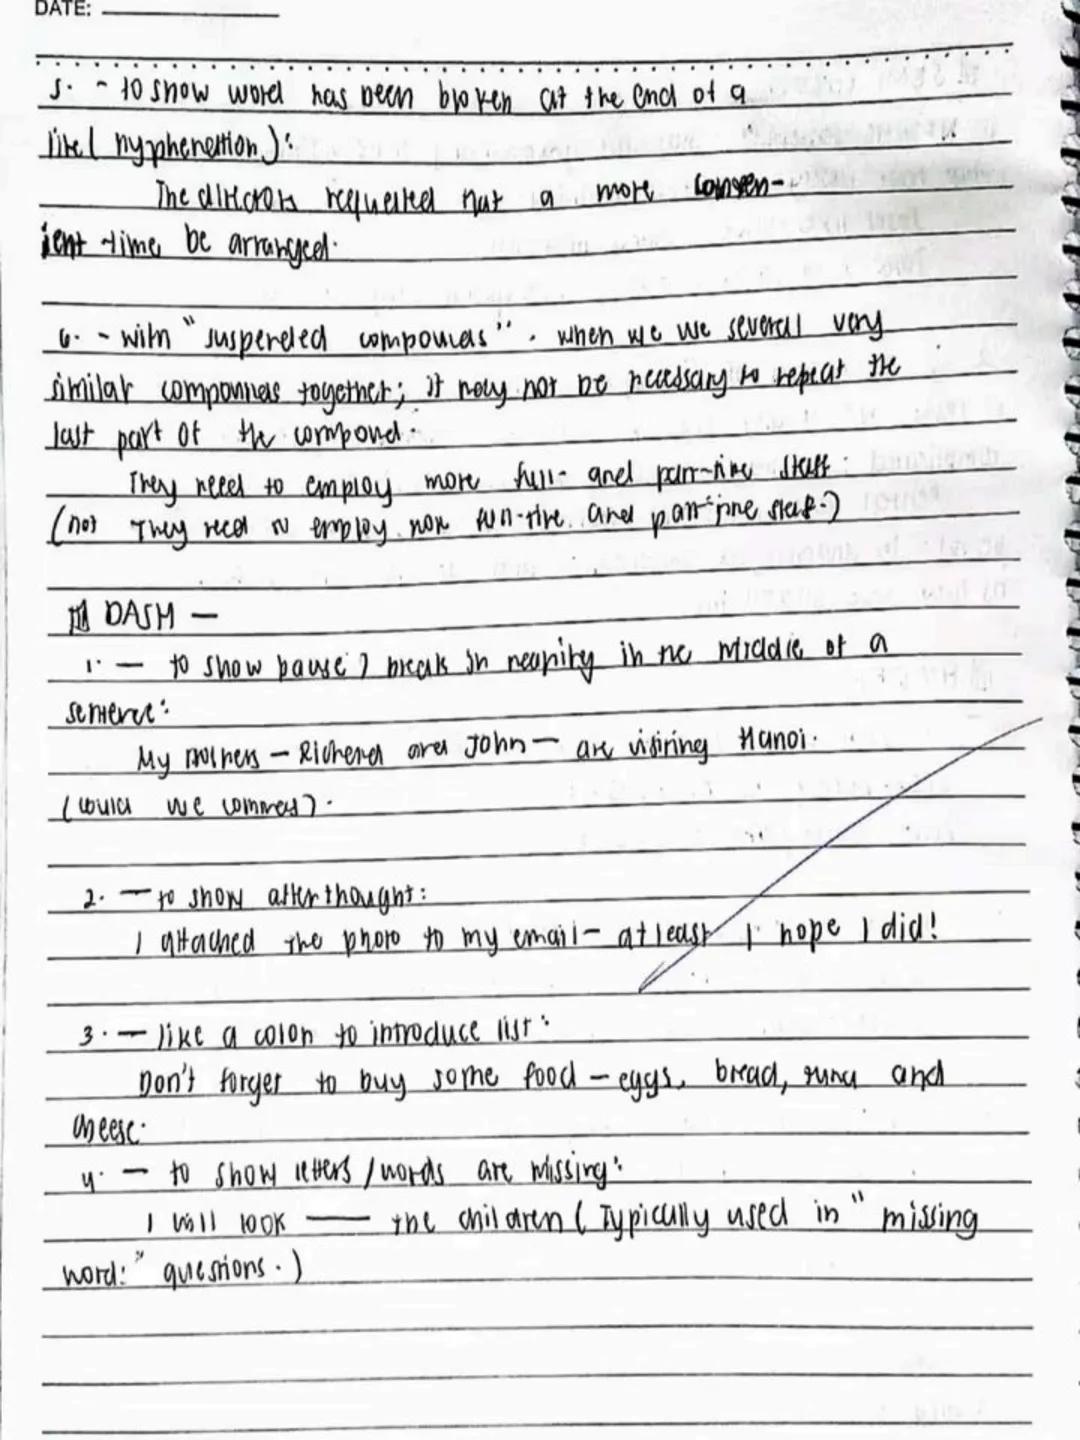 DATE:
5. - to show word has been broken at the end of a
line (hyphenation):
The directors requested that a more conven-
ient time be arranged.
6. - with "suspended compounds". when we use several very
similar compounds together; it may not be necessary to repeat the
last part of the compound.
They need to employ more full- and part-time staff.
(not They need to employ more full-time and part-time staff.)
DASH —
1. — to show pause / break in meaning in the middle of a
sentence:
My brothers — Richard and John — are visiting Hanoi.
(could use commas).
2. — to show afterthought:
I attached the photo to my email — at least I hope I did!
3. — like a colon to introduce list:
Don't forget to buy some food — eggs, bread, tuna and
cheese.
4. — to show letters / words are missing:
I will look —— the children (Typically used in "missing
word:" questions.)